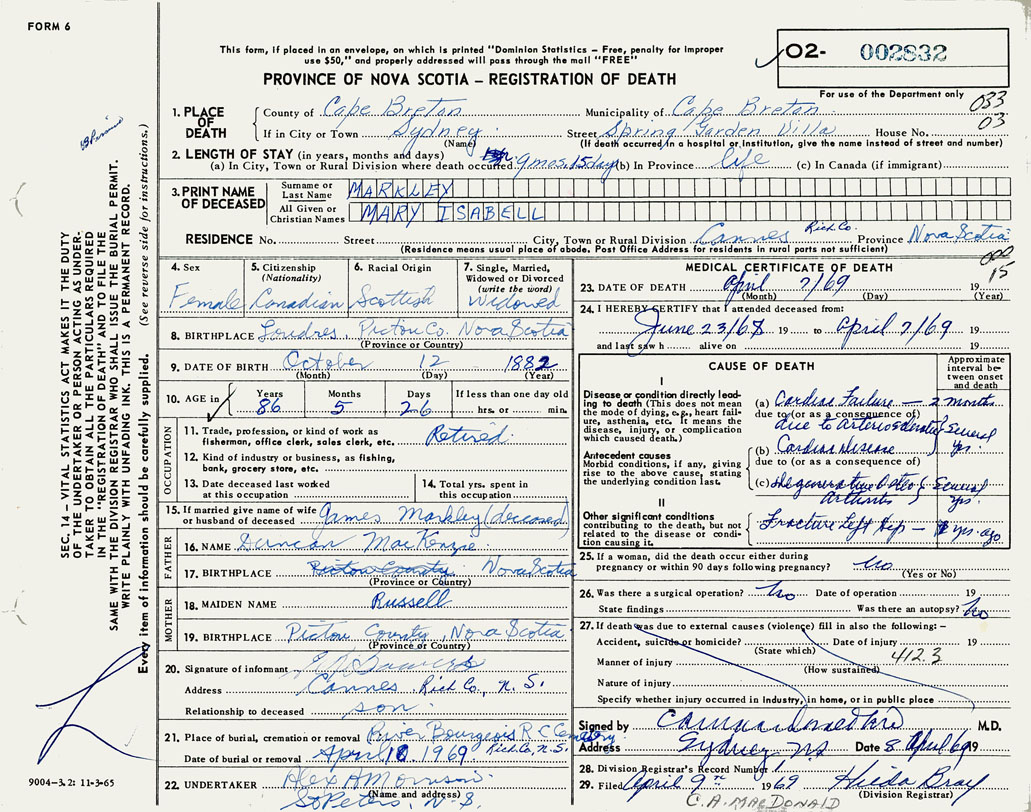 FORM 6
This form, if placed in an envelope, on which is printed "Dominion Statistics – Free, penalty for improper
use $50," and properly addressed will pass through the mail "FREE"
PROVINCE OF NOVA SCOTIA – REGISTRATION OF DEATH
O2- 002832
For use of the Department only
033
03
1. PLACE OF DEATH
County of Cape Breton Municipality of Cape Breton
If in City or Town Sydney Street Spring Garden Villa House No.
(Name) (If death occurred in a hospital or institution, give the name instead of street and number)
2. LENGTH OF STAY (in years, months and days)
(a) In City, Town or Rural Division where death occurred 9 mos. 15 days (b) In Province life (c) In Canada (if immigrant)
3. PRINT NAME OF DECEASED
Surname or Last Name MARKLEY
All Given or Christian Names MARY ISABELL
RESIDENCE No. Street City, Town or Rural Division Cannes Rich. Co. Province Nova Scotia
(Residence means usual place of abode. Post Office Address for residents in rural parts not sufficient)
002
15
4. Sex
Female
5. Citizenship (Nationality)
Canadian
6. Racial Origin
Scottish
7. Single, Married, Widowed or Divorced (write the word)
Widowed
8. BIRTHPLACE Loudres, Pictou Co. Nova Scotia
(Province or Country)
9. DATE OF BIRTH October 12 1882
(Month) (Day) (Year)
10. AGE in
Years 86
Months 5
Days 26
If less than one day old
hrs. or min.
OCCUPATION
11. Trade, profession, or kind of work as
fisherman, office clerk, sales clerk, etc. Retired
12. Kind of industry or business, as fishing,
bank, grocery store, etc.
13. Date deceased last worked
at this occupation
14. Total yrs. spent in
this occupation
15. If married give name of wife
or husband of deceased James Markley (deceased)
FATHER
16. NAME Duncan MacKenzie
17. BIRTHPLACE Pictou County Nova Scotia
(Province or Country)
MOTHER
18. MAIDEN NAME Russell
19. BIRTHPLACE Pictou County, Nova Scotia
(Province or Country)
20. Signature of informant
Address Cannes Rich Co., N.S.
Relationship to deceased son
21. Place of burial, cremation or removal River Bourgeois R C Cemetery
Rich Co, N.S.
Date of burial or removal April 10, 1969
22. UNDERTAKER Alex A Morrison
(Name and address)
St Peters, N.S.
MEDICAL CERTIFICATE OF DEATH
23. DATE OF DEATH April 7/69 19
(Month) (Day) (Year)
24. I HEREBY CERTIFY that I attended deceased from:
June 23/68 19 to April 7/69 19
and last saw h alive on 19
CAUSE OF DEATH
Approximate interval between onset and death
I
Disease or condition directly leading to death (This does not mean the mode of dying, e.g., heart failure, asthenia, etc. It means the disease, injury, or complication which caused death.)
(a) Cardiac Failure — 2 months
due to (or as a consequence of)
due to Arteriosclerotic Several yrs.
Antecedent causes
Morbid conditions, if any, giving rise to the above cause, stating the underlying condition last.
(b) Cardiac Disease
due to (or as a consequence of)
(c) degenerative Osteo Arthritis Several yrs.
II
Other significant conditions
contributing to the death, but not related to the disease or condition causing it.
Fracture Left Hip — yrs. ago
25. If a woman, did the death occur either during
pregnancy or within 90 days following pregnancy? no
(Yes or No)
26. Was there a surgical operation? no Date of operation 19
State findings Was there an autopsy? no
27. If death was due to external causes (violence) fill in also the following:–
Accident, suicide or homicide? Date of injury 19
(State which)
412.3
Manner of injury
(How sustained)
Nature of injury
Specify whether injury occurred in Industry, in home, or in public place
Signed by M.D.
Address Sydney NS Date 8 April 69 19
28. Division Registrar's Record Number
29. Filed April 9th 1969 Hilda Bray
(Division Registrar)
C. A. MACDONALD
SEC. 14 – VITAL STATISTICS ACT MAKES IT THE DUTY
OF THE UNDERTAKER OR PERSON ACTING AS UNDER-
TAKER TO OBTAIN ALL THE PARTICULARS REQUIRED
IN THE "REGISTRATION OF DEATH" AND TO FILE THE
SAME WITH THE DIVISION REGISTRAR WHO SHALL ISSUE THE BURIAL PERMIT.
WRITE PLAINLY WITH UNFADING INK. THIS IS A PERMANENT RECORD.
Every item of information should be carefully supplied. (See reverse side for instructions.)
9004–3.2: 11-3-65